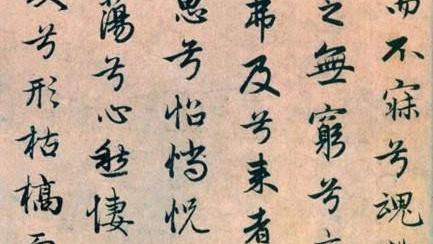 而不寐兮魂
之無窮兮
弗及兮来者
思兮怊惝怳
蕩兮心愁悽
兮形枯槁而